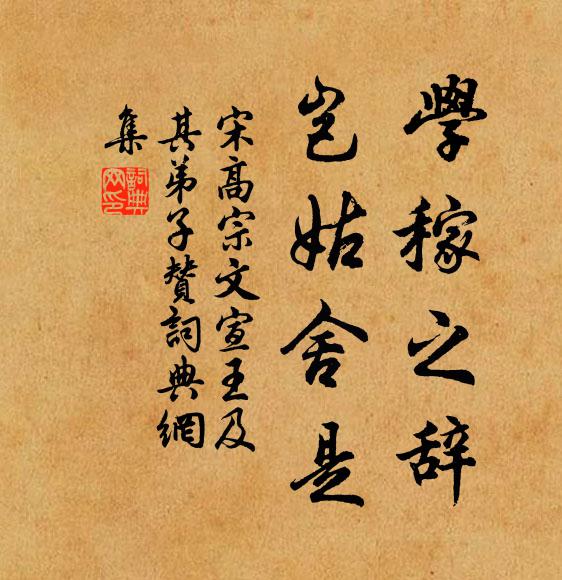 學稼之辞
岂姑舍是
宋高宗文宣王及
其弟子赞詞典網
集
詞典
网印